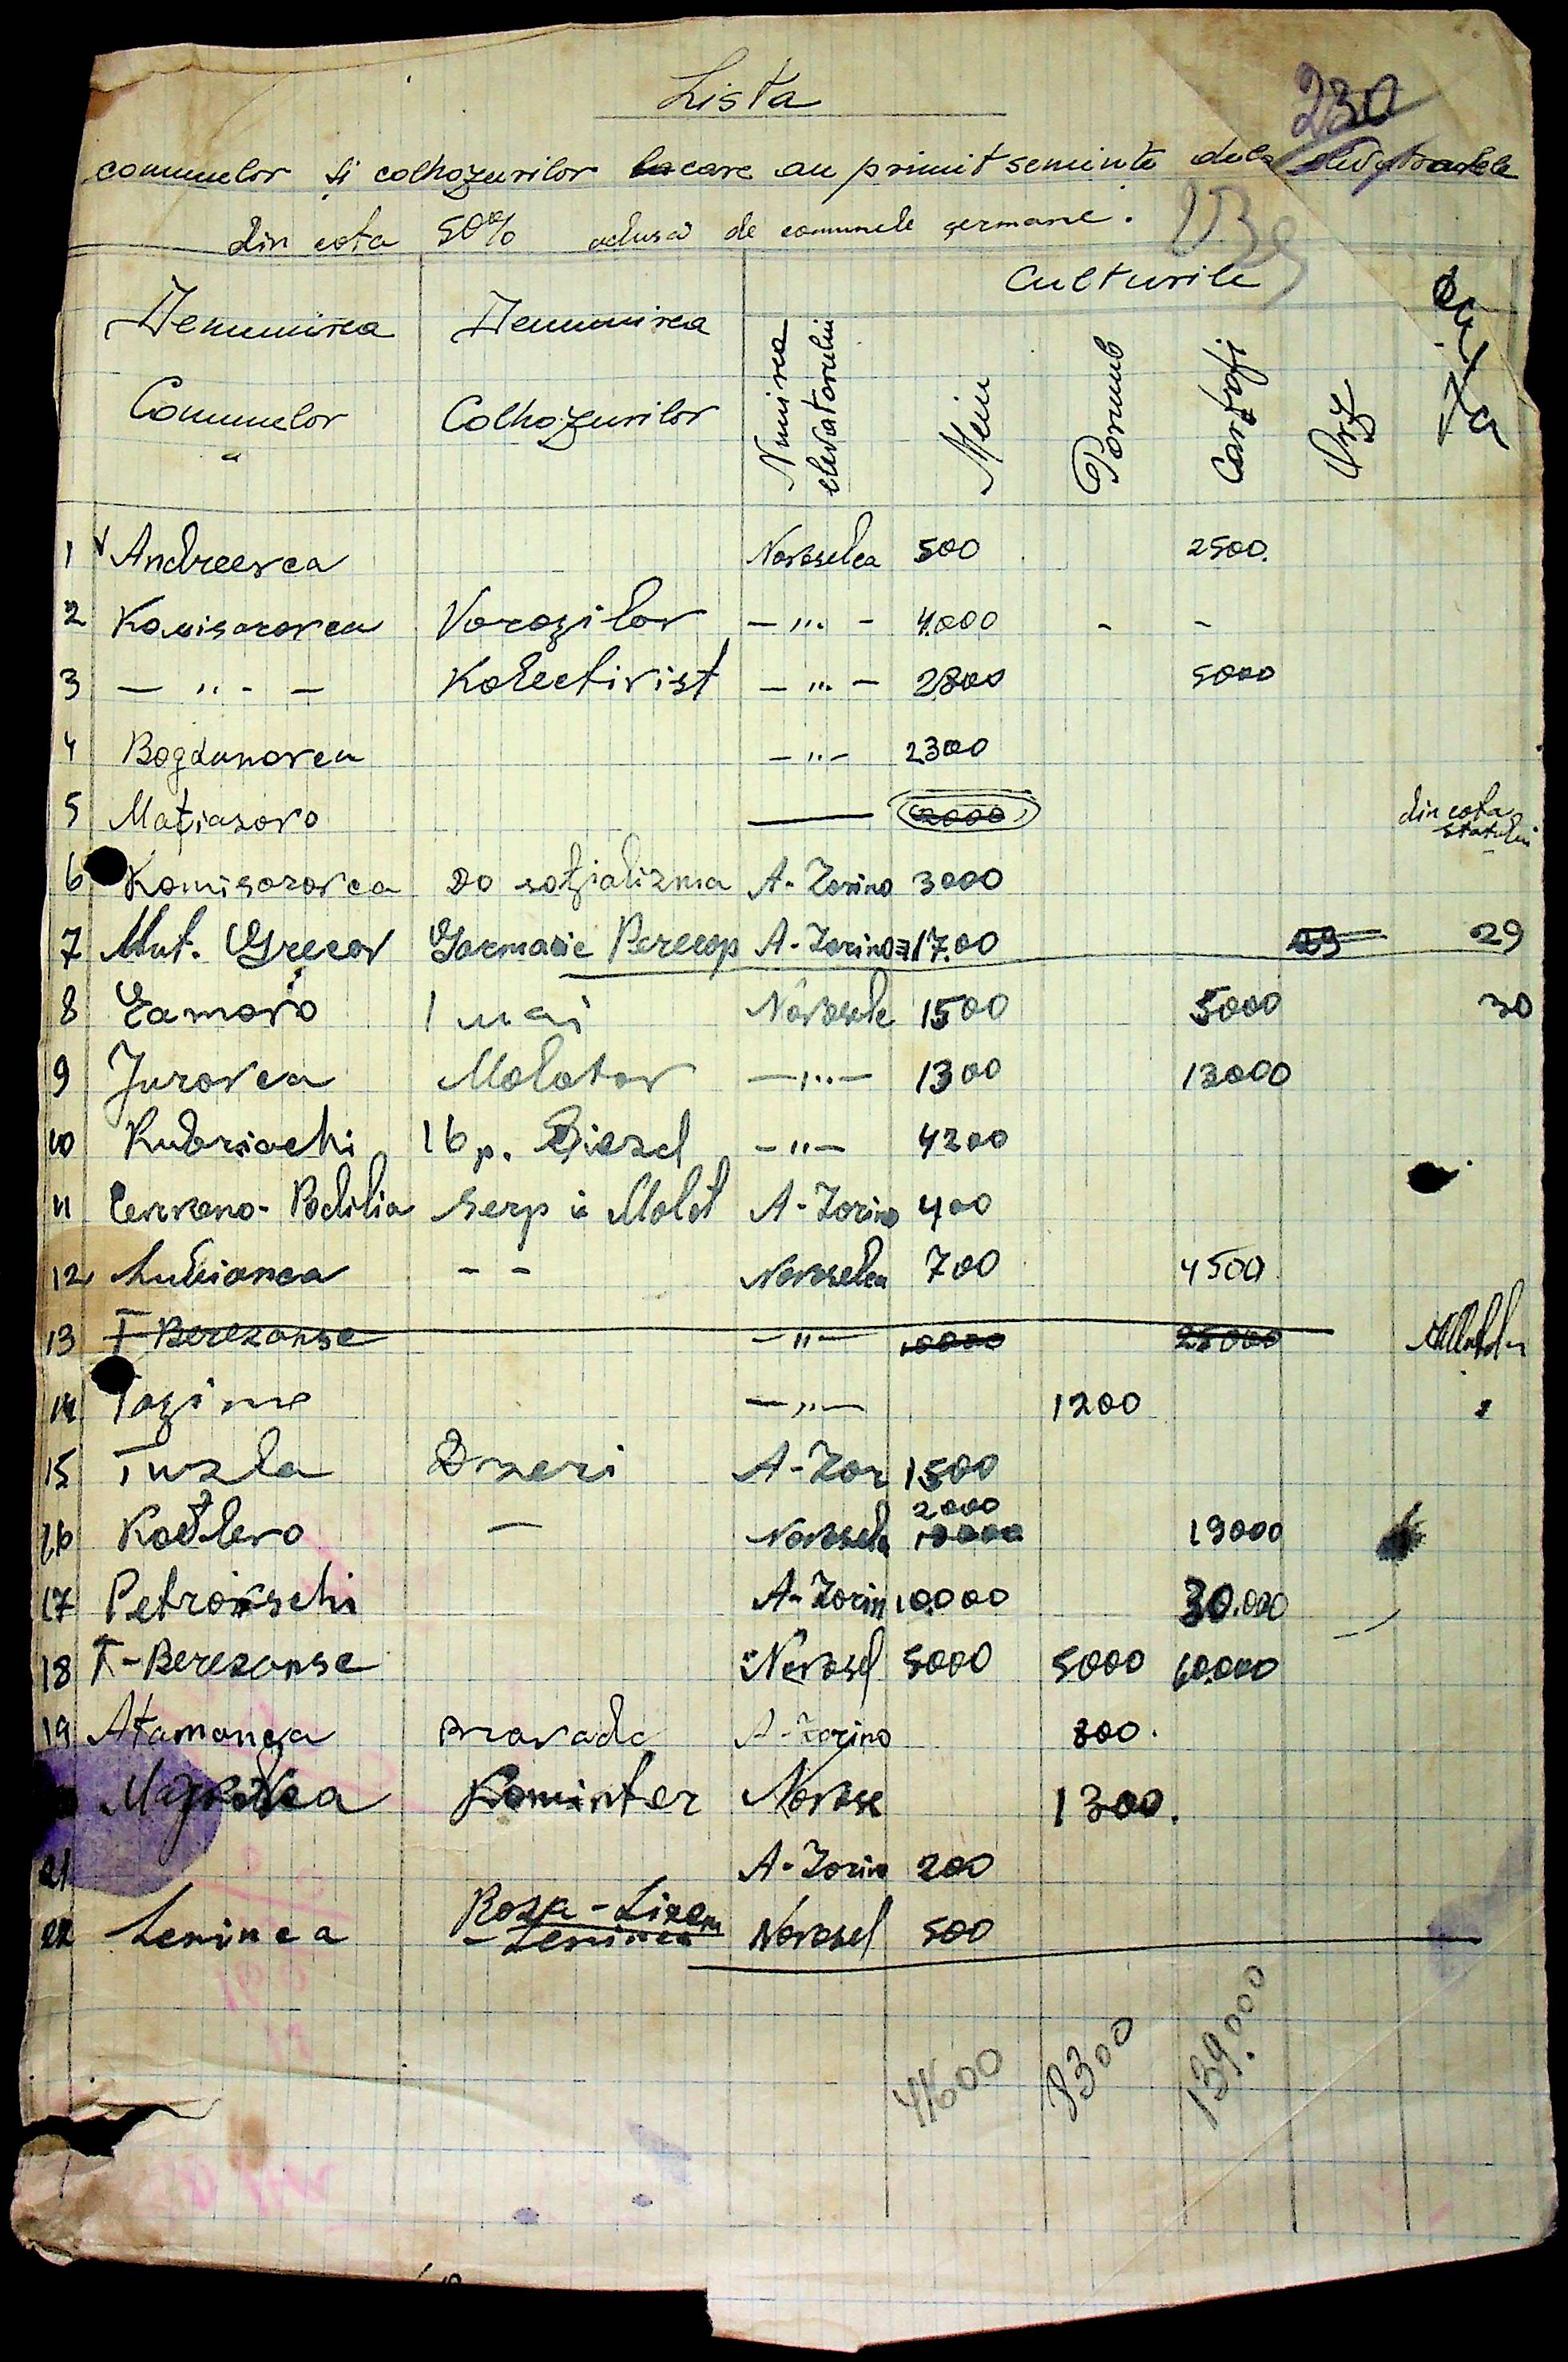 Lista
230
comunelor și colhozurilor care au primit seminte dela
din cota 50% adusa de comunele germane.
Culturile
Denumirea Comunelor
Denumirea Colhozurilor
Numirea elevatorului
Meiu
Porumb
Cartofi
Orz
1 Andreevca Novoselca 500 2500.
2 Komisarovca Voroșilov — " — 4.000 - -
3 — " — Kolectivist — " — 2800 5000
4 Bogdanovca — " — 2300
5 Mațiasovo — 2000 din cota statului
6 Komisarovca Do soțializma A-Zorino 3000
7 Mut. Grecov Garmasic Perecop A-Zorino 1700 29 29
8 1 mai Novosele 1500 5000 30
9 Jurovca Molotov — " — 1300 13000
10 Kubriachi 16 p. Siezd — " — 4200
11 Cervono-Podilia Serp i Molot A-Zorino 400
12 Lubianca - - Novoselca 700 4500
13 T-Berezanse — " — 10000 25000
14 — " — 1200
15 Tuzla A-Zor 1500
16 Novosela 2000 10000 19000
17 Petrovschi A-Zorin 10.000 30.000
18 T-Berezanse Novosel 5000 5000 60.000
19 Atamanca pravada A-Zorino 800.
Kominter Novose 1300.
21 A-Zorin 200
22 Leninca Roza-Lixem - Leninca Novosel 500
41600 8300 139.000